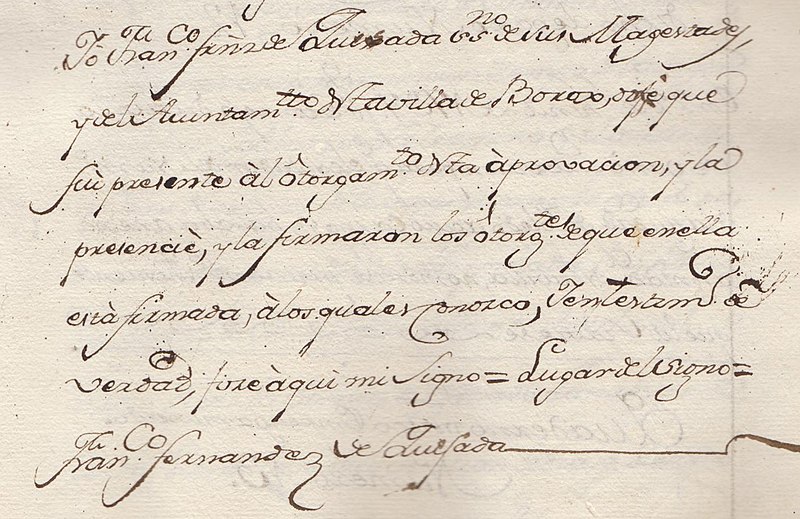 Yo Fran.co frnz de Quesada ss.no de sus Magestades,
y del Aiuntam.tto desta villa de Borox, doi fè que
fuì presente à el ôtorgam.to desta àprovacion, y la
presenciè, y la firmaron los ôtorg.tes de que en ella
està firmada, à los quales conozco, y en testim.o de
verdad, fize àqui mi signo = Lugar del signo =
Fran.co fernandez de Quesada